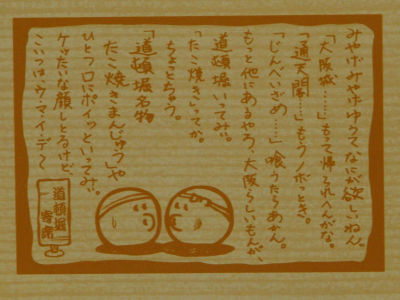 みやげみやげゆうてなにが欲しいねん。
「大阪城……」もって帰られへんがな。
「通天閣……」もうノボっとき。
「じんべいざめ……」喰うたらあかん。
もっと他にあるやろ、大阪らしいもんが、
道頓堀いってみ。
「たこ焼き」ってか。
ちょっとちゃう。
「道頓堀名物
たこ焼きまんじゅう」や
ひとつ口にポイッといってみ。
ケッタいな顔しとるけど、
こいつは、ウ・マ・イ・デ〜
道頓堀
寄席